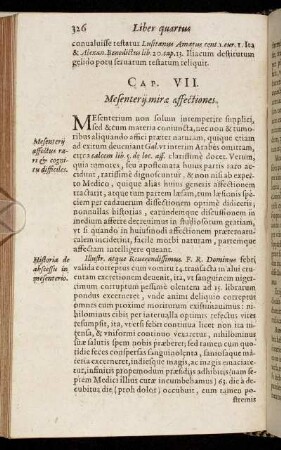 326 Liber quartus
conualuisse testatus Lusitanus Amatus cent. 1. cur. 1. Ita
& Alexan. Benedictus lib. 20. cap. 13. Iliacum destitutum
gelido potu seruatum testatum reliquit.
CAP. VII.
Mesenterij miræ affectiones.
Mesenterij
affectus ra-
ri & cogni-
tu difficiles.
MEsenterium non solum intemperie simplici,
sed & cum materia coniuncta, nec non & tumoribus
aliquando affici præter naturam, quique etiam
ad exitum deueniant Gal. vt interim Arabes omittam,
lib. 5. de loc. aff. clarissimè docet. Verùm,
quia tumores, seu apostemata huius partis raro
acciderint, ratioque dignoscuntur, & non nisi ab exper-
to Medico, quique alias huius generis affectionem
tractet, atque tam partem læsam, tum læsionis spe-
ciem per cadauerum dissectionem optimè didicerit,
nonnullas historias, earundemque discussionem in
medium afferre decreuimus in studiosorum gratiam,
vt si quando in huiusmodi affectionem præternatu-
ralem inciderint, facile morbi naturam, partemque
affectam intelligere queant.
Historia de
abscessu in
mesenterio.
Illustr. atque Reuerendissimus F. R. Dominus febri
valida correptus cum vomitu 14. transacta in alui cru-
entam excretionem deuenit, ita vt sanguinem nigri-
cantum corruptum pessimi odoris ad 15. liberarum
pondus excerneret, vnde animi deliquio correptus
omnem vim corporis motiuam amiserat extemplo:
nihilominus cibi per interualla optimis refectus vires
resumpsit, ita, vt etsi febris continua lenta non re-
mittens, & vniformi continuo vexaretur, nihilominus
suæ salutis spem nobis præberet; sed tamen cum quo-
tidie feces conspersas sanguinolenta, saniosaque mate-
ria excerneret, indiesque magis, ac magis emaciaretur,
infinitis propemodum præsidijs adhibitis (nam se-
prem Medici illius curæ incumbebamus) 63. die à de-
cubitu die (proh dolor) occubuit, cum tamen po-
stremis